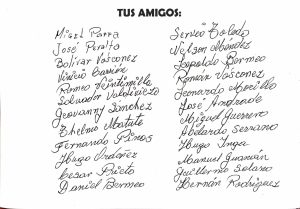 TUS AMIGOS:
Miguel Parra
José Peralta
Bolívar Vásconez
Vinicio Carrión
Romeo Veintimilla
Salvador Valdivieso
Geovanny Sánchez
Ethelvio Matute
Fernando Pinos
Hugo Ordóñez
Cesar Prieto
Daniel Bermeo
Servio Toledo
Nelson Méndez
Leopoldo Bermeo
Román Vásconez
Leonardo Morillo
José Andrade
Miguel Guerrero
Abelardo Serrano
Hugo Inga
Manuel Guamán
Guillermo Solano
Hernán Rodríguez